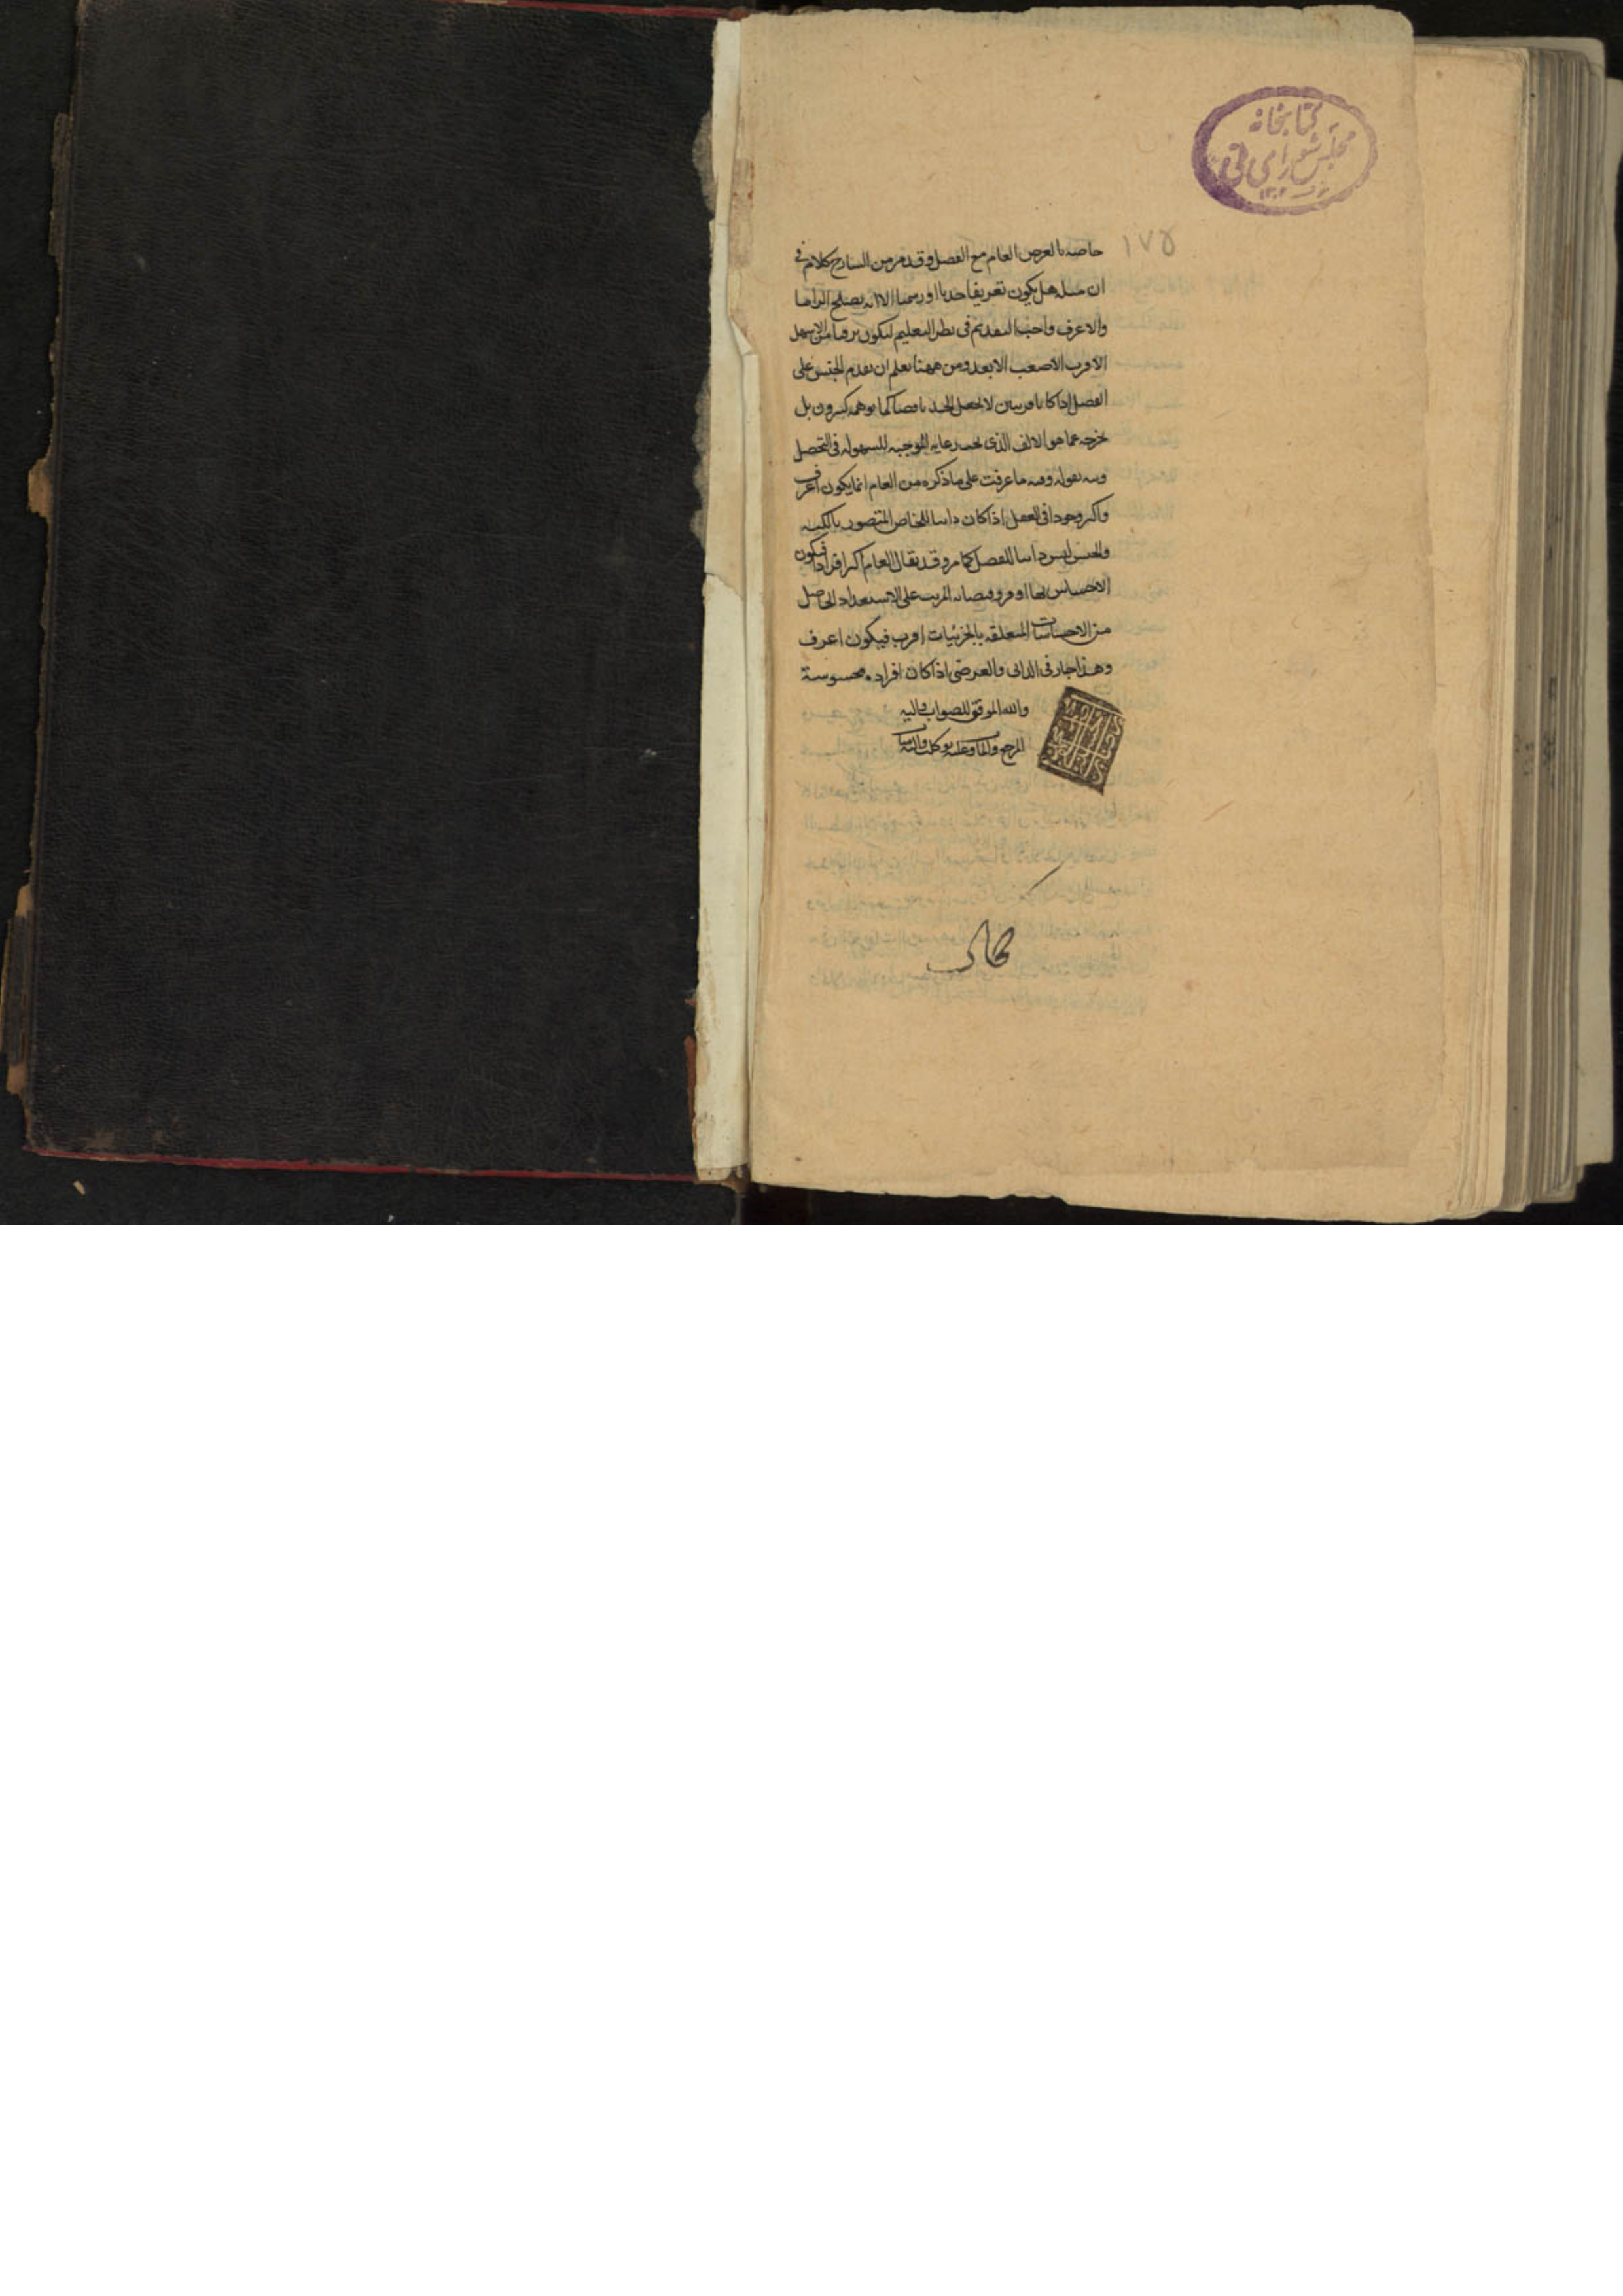 كتابخانه
مجلس شورای ملی
١٧٥
خاصه بالعرض العام مع الفصل وقد مر من الشارح كلام فى
ان مثله هل يكون تعريفا حديا او رسميا الا انه يصلح
والاعرف واجب التقديم فى نظر التعليم ليكون من الاسهل
الاقرب الاصعب الابعد ومن ههنا يعلم ان تقدم الجنس على
الفصل اذا كانا قريبين لا يجعل الحد ناقصا كما توهمه كثيرون بل
يخرجه عما هو الالف الذى رعايه الموجبه للسهوله فى التحصيل
وفيه ما عرفت على ما ذكره من العام انما يكون اعرف
واكثر وجودا فى العقل اذا كان ذاتيا للخاص المتصور بالكنه
والجنس ليس ذاتيا للفصل كما مر وقد يقال العام اكثر افرادا فيكون
الاحساس بها اوفر وفيضانه المرتب على الاستعداد الحاصل
من الاحساسات المتعلقه بالجزئيات اقرب فيكون اعرف
وهذا جار فى الذاتى والعرضى اذا كان افراده محسوسة
والله الموفق للصواب واليه
المرجع والمآب وعليه توكلت واليه